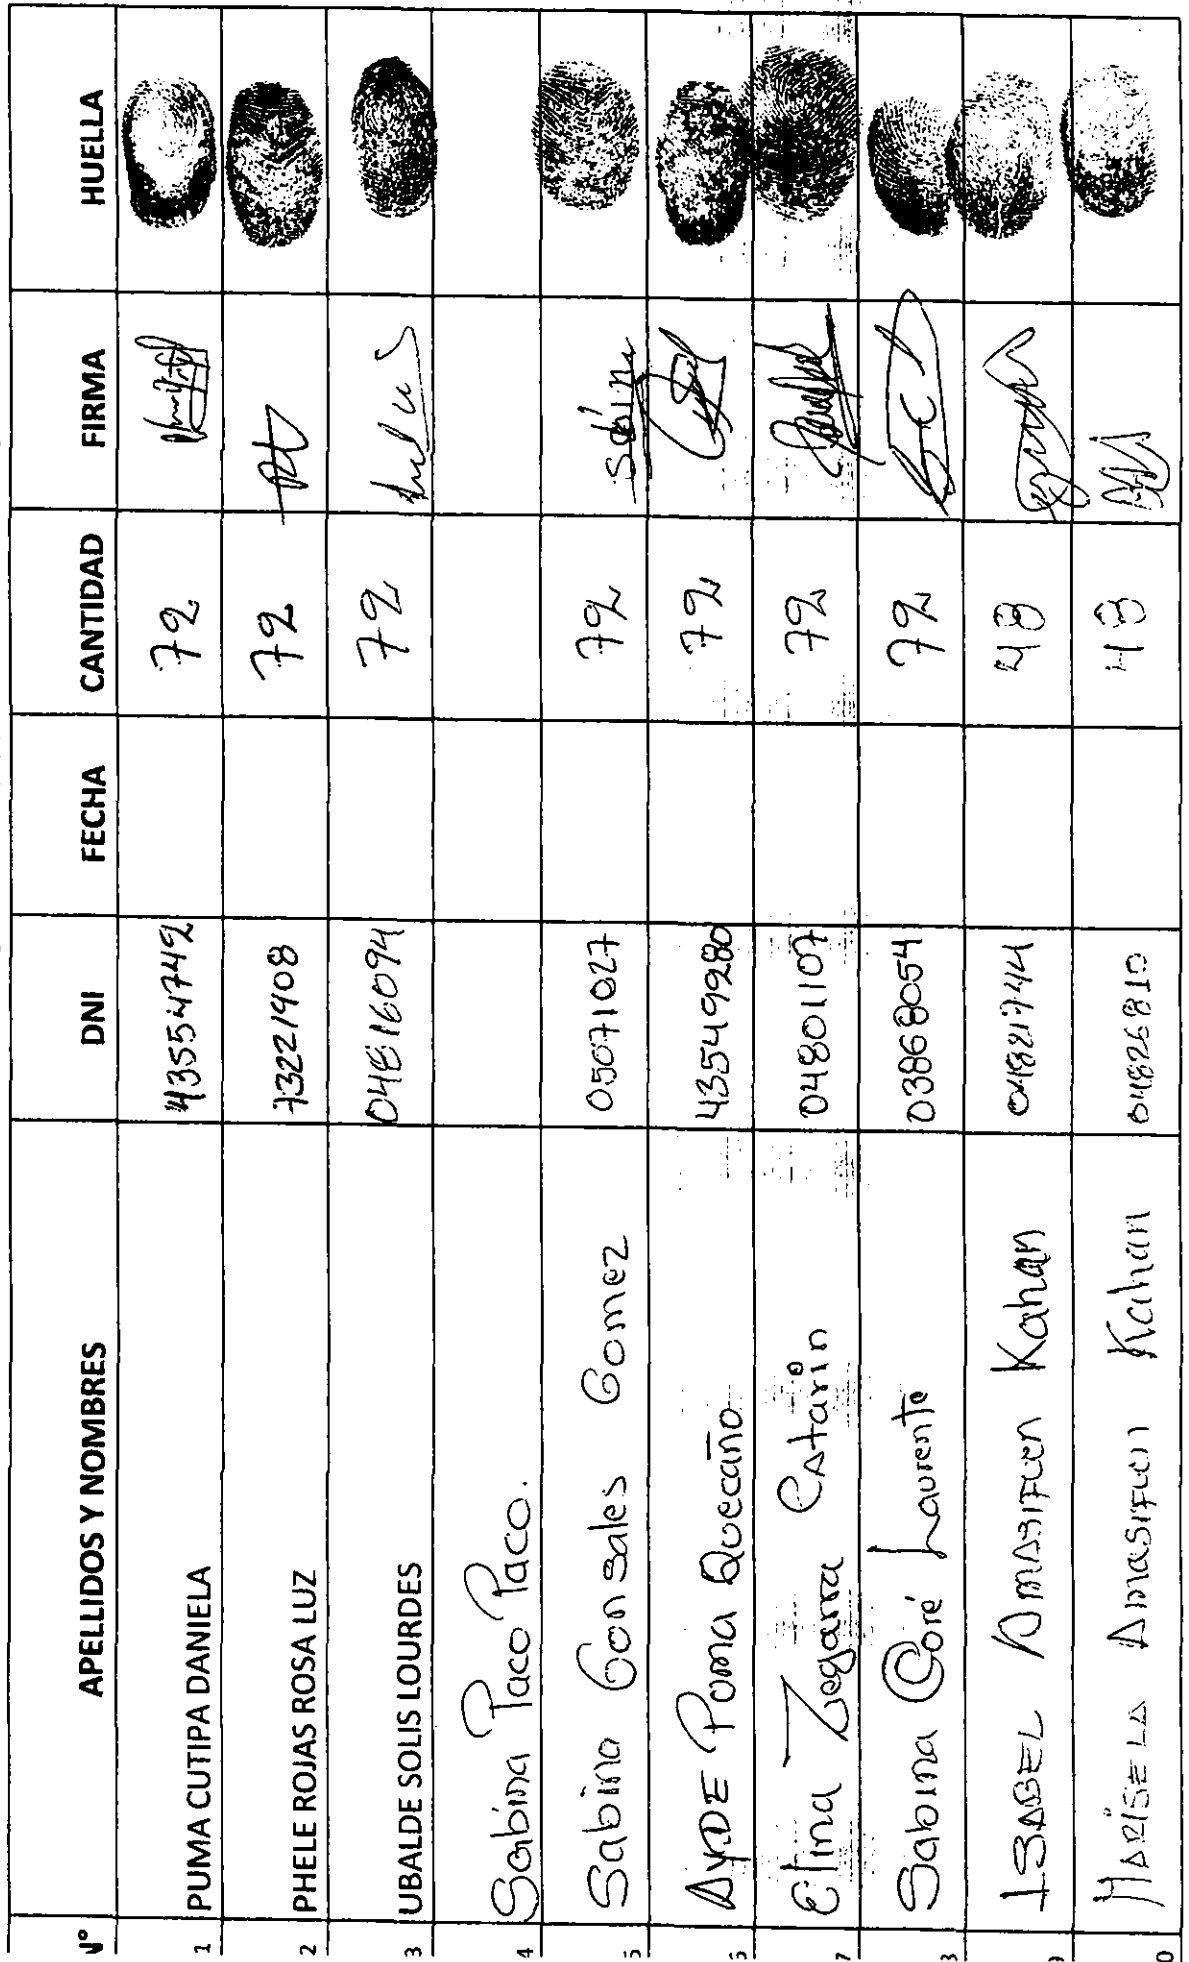 N° APELLIDOS Y NOMBRES DNI FECHA CANTIDAD FIRMA HUELLA
1 PUMA CUTIPA DANIELA 43554742 72
2 PHELE ROJAS ROSA LUZ 73221908 72
3 UBALDE SOLIS LOURDES 04816094 72
4 Sabina Paco Paco.
5 Sabino Gonsales Gomez 05071027 72 Sabino
6 AyDE Poma Quecaño 43549280 72
7 Elina Zegarra Catarin 04801107 72
8 Sabina Coré Laurente 03868054 72
9 ISABEL AMASIFUEN Kahan 04821744 48
0 MARISELA AMASIFUEN Kahan 04826810 48